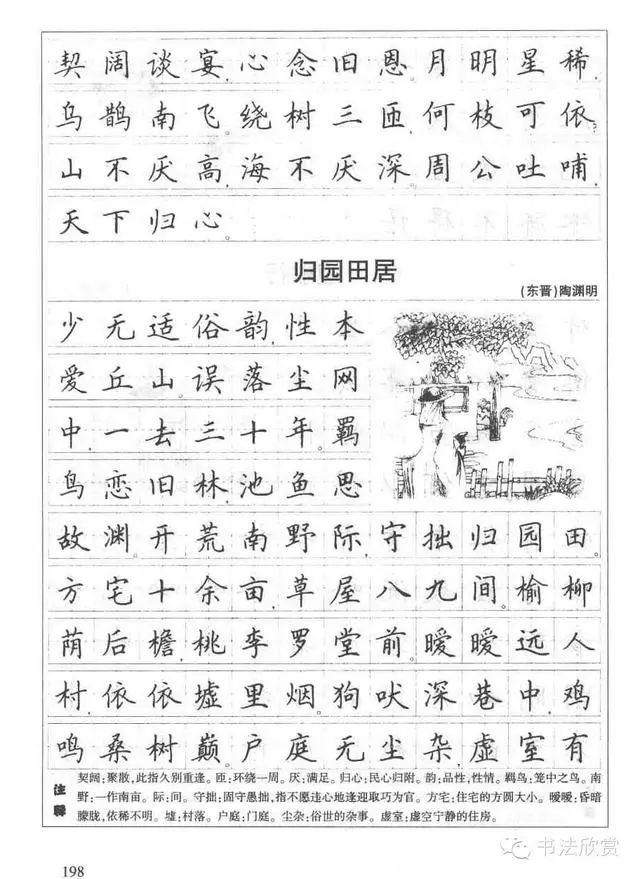 契阔谈宴,心念旧恩。月明星稀,
乌鹊南飞。绕树三匝,何枝可依?
山不厌高,海不厌深。周公吐哺,
天下归心。
归园田居
(东晋)陶渊明
少无适俗韵,性本
爱丘山。误落尘网
中,一去三十年。羁
鸟恋旧林,池鱼思
故渊。开荒南野际,守拙归园田。
方宅十余亩,草屋八九间。榆柳
荫后檐,桃李罗堂前。暧暧远人
村,依依墟里烟。狗吠深巷中,鸡
鸣桑树巅。户庭无尘杂,虚室有
注释
契阔:聚散,此指久别重逢。匝:环绕一周。厌:满足。归心:民心归附。韵:品性,性情。羁鸟:笼中之鸟。南
野:一作南亩。际:间。守拙:固守愚拙,指不愿违心地逢迎取巧为官。方宅:住宅的方圆大小。暧暧:昏暗
朦胧,依稀不明。墟:村落。户庭:门庭。尘杂:俗世的杂事。虚室:虚空宁静的住房。
198
书法欣赏